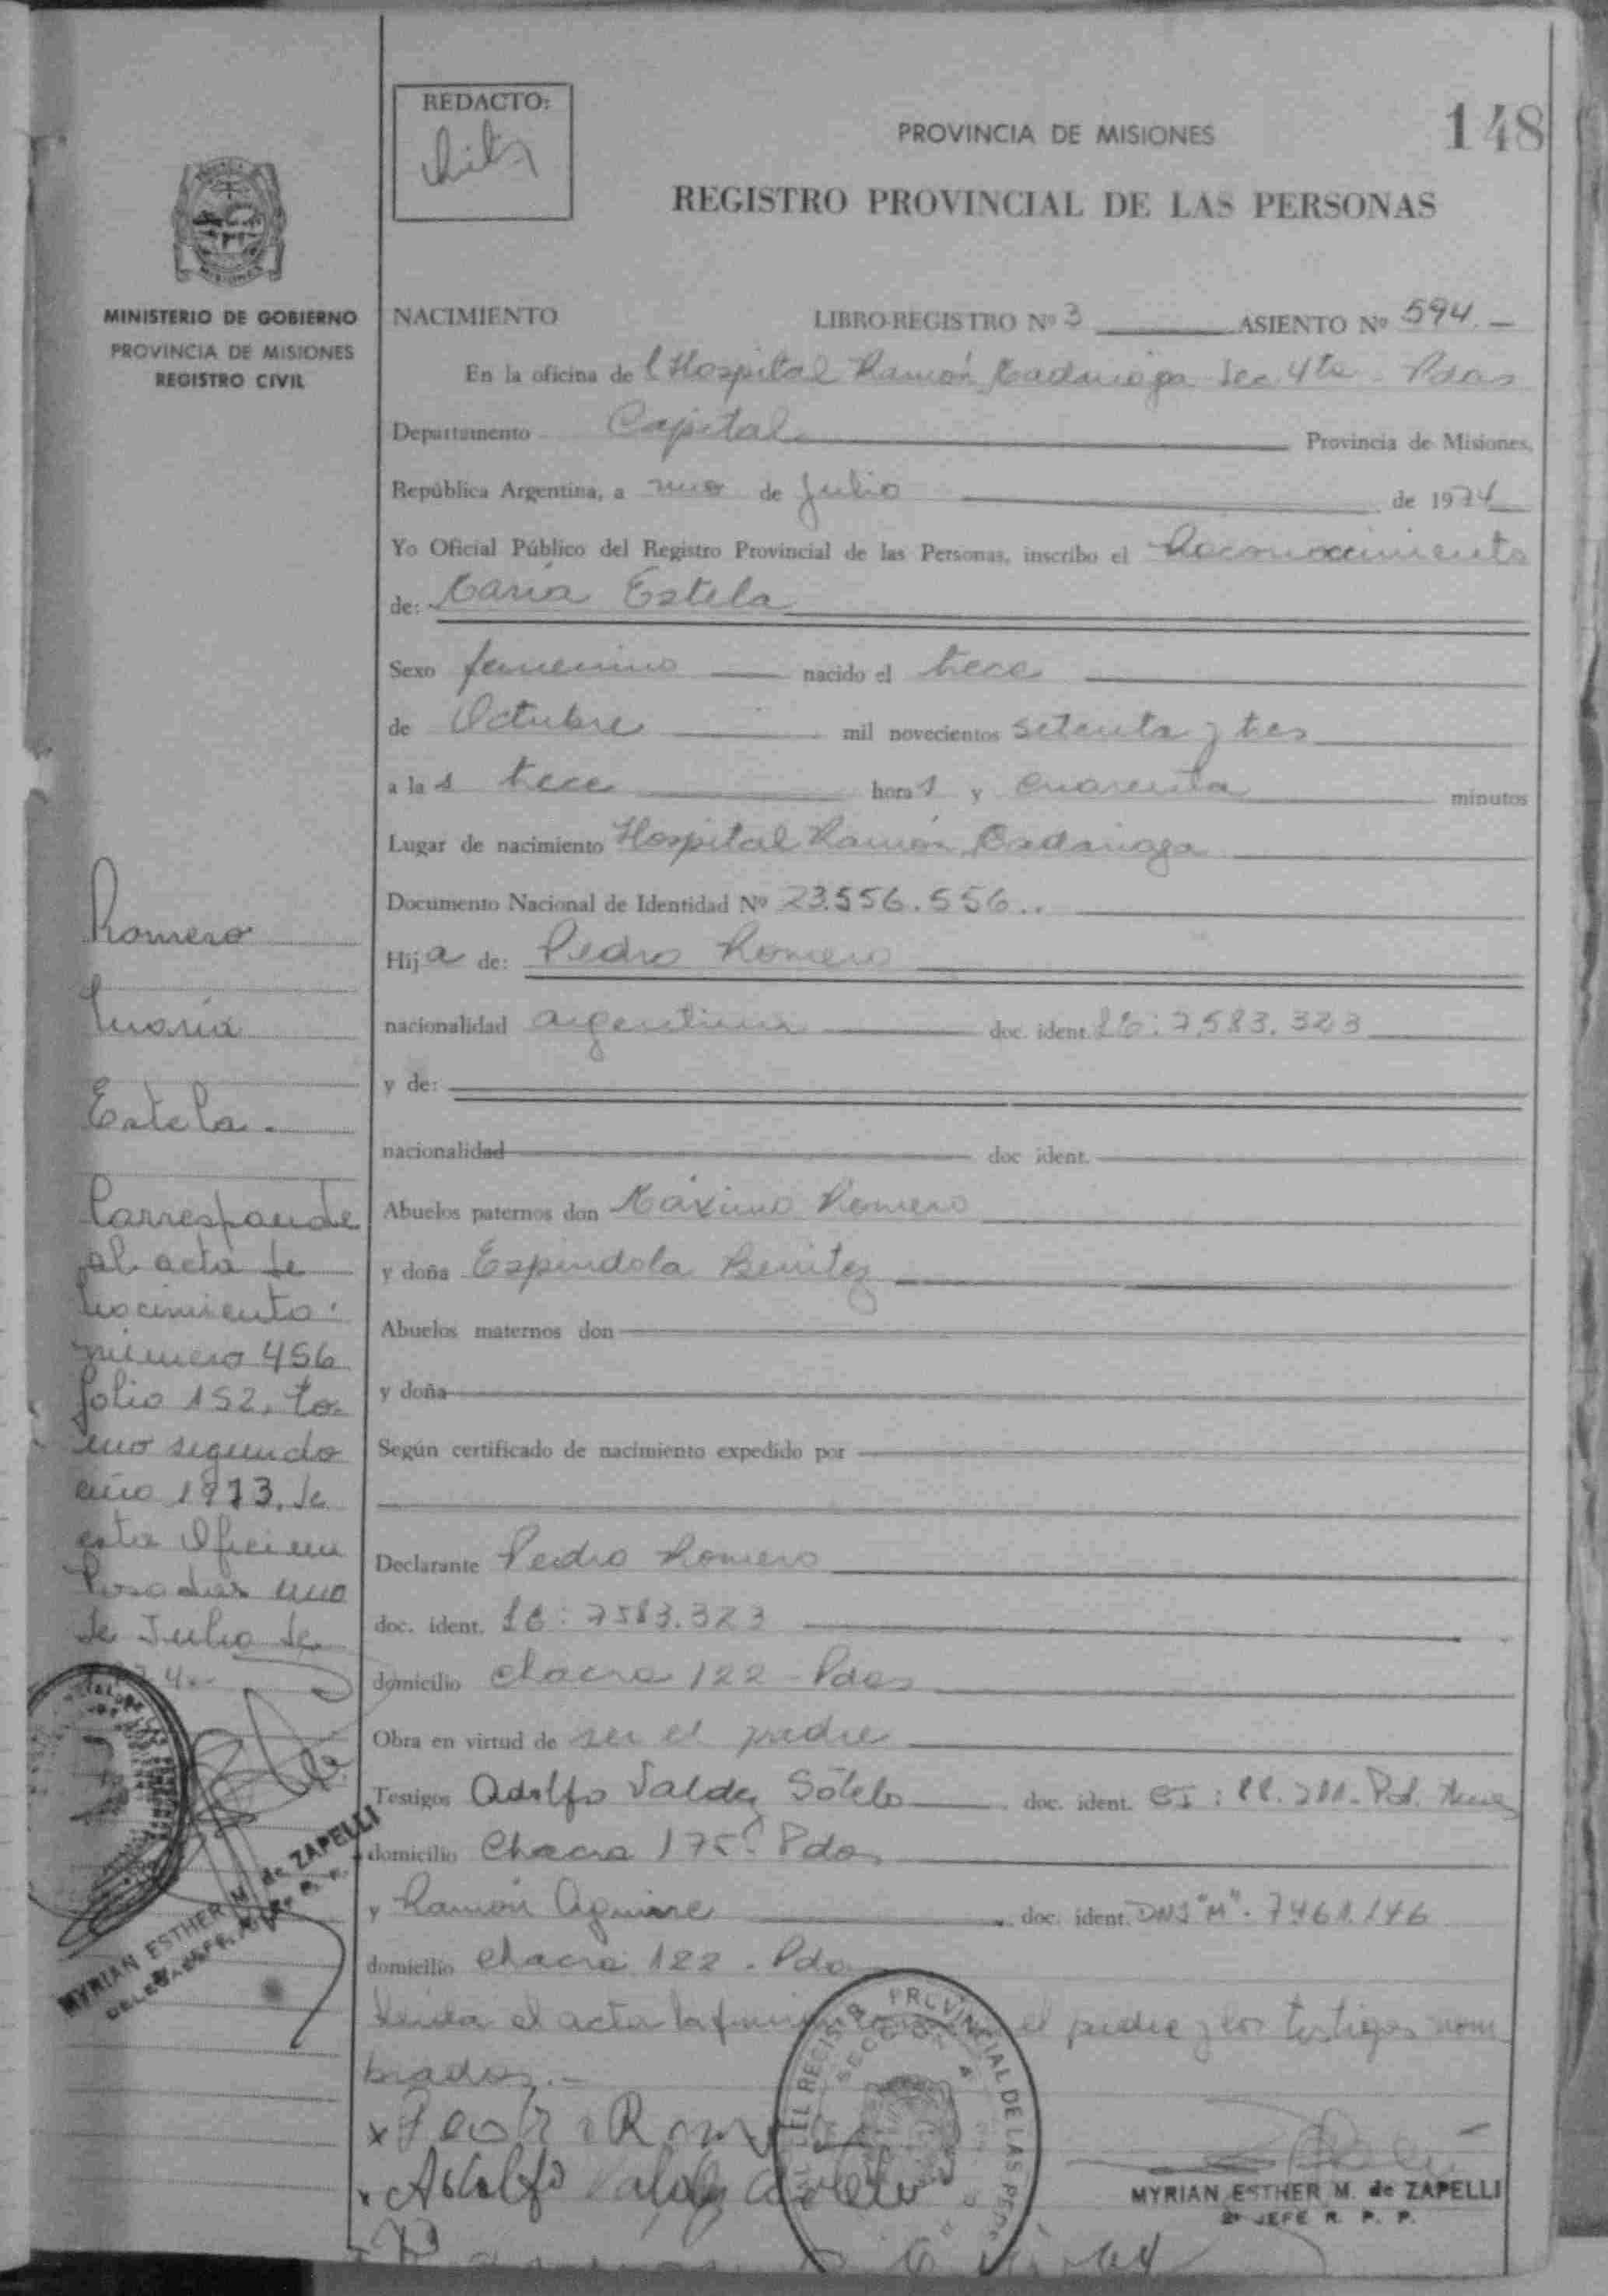 REDACTO:
PROVINCIA DE MISIONES
148
REGISTRO PROVINCIAL DE LAS PERSONAS
MINISTERIO DE GOBIERNO
PROVINCIA DE MISIONES
REGISTRO CIVIL
NACIMIENTO LIBRO-REGISTRO Nº 3 ASIENTO Nº 594.-
En la oficina del Hospital Ramón Madariaga Sec. 4ta - Pdas
Departamento Capital Provincia de Misiones,
República Argentina, a uno de Julio de 1974
Yo Oficial Público del Registro Provincial de las Personas, inscribo el Reconocimiento
de: María Estela
Sexo femenino nacido el trece
de Octubre mil novecientos setenta y tres
a las trece horas y cuarenta minutos
Lugar de nacimiento Hospital Ramón Madariaga
Documento Nacional de Identidad Nº 23.556.556..
Hija de: Pedro Romero
nacionalidad argentina doc. ident. LE: 7.583.323
y de:
nacionalidad doc ident.
Abuelos paternos don Máximo Romero
y doña Espindola Benitez
Abuelos maternos don
y doña
Según certificado de nacimiento expedido por
Declarante Pedro Romero
doc. ident. LE: 7583.323
domicilio chacra 122 - Pdas
Obra en virtud de ser el padre
Testigos Adolfo Valdez Sótelo doc. ident. CI: Pol. Mnes
domicilio Chacra 175- Pdas
y Ramón Aguirre doc. ident. DNI "M". 7461.146
domicilio chacra 122 - Pdas
Leida el acta la firman el padre y los testigos nom
brados.-
x Pedro Romero
x Adolfo Valdez Sotelo
Romero
María
Estela.
Corresponde
al acta de
nacimiento
número 456
folio 152, to-
mo segundo
año 1973, de
esta Oficina
Posadas uno
de Julio de
1974.-
MYRIAN ESTHER M. de ZAPELLI
MYRIAN ESTHER M. de ZAPELLI
2º JEFE R. P. P.
REGISTRO PROVINCIAL DE LAS PERS
SECCION 4